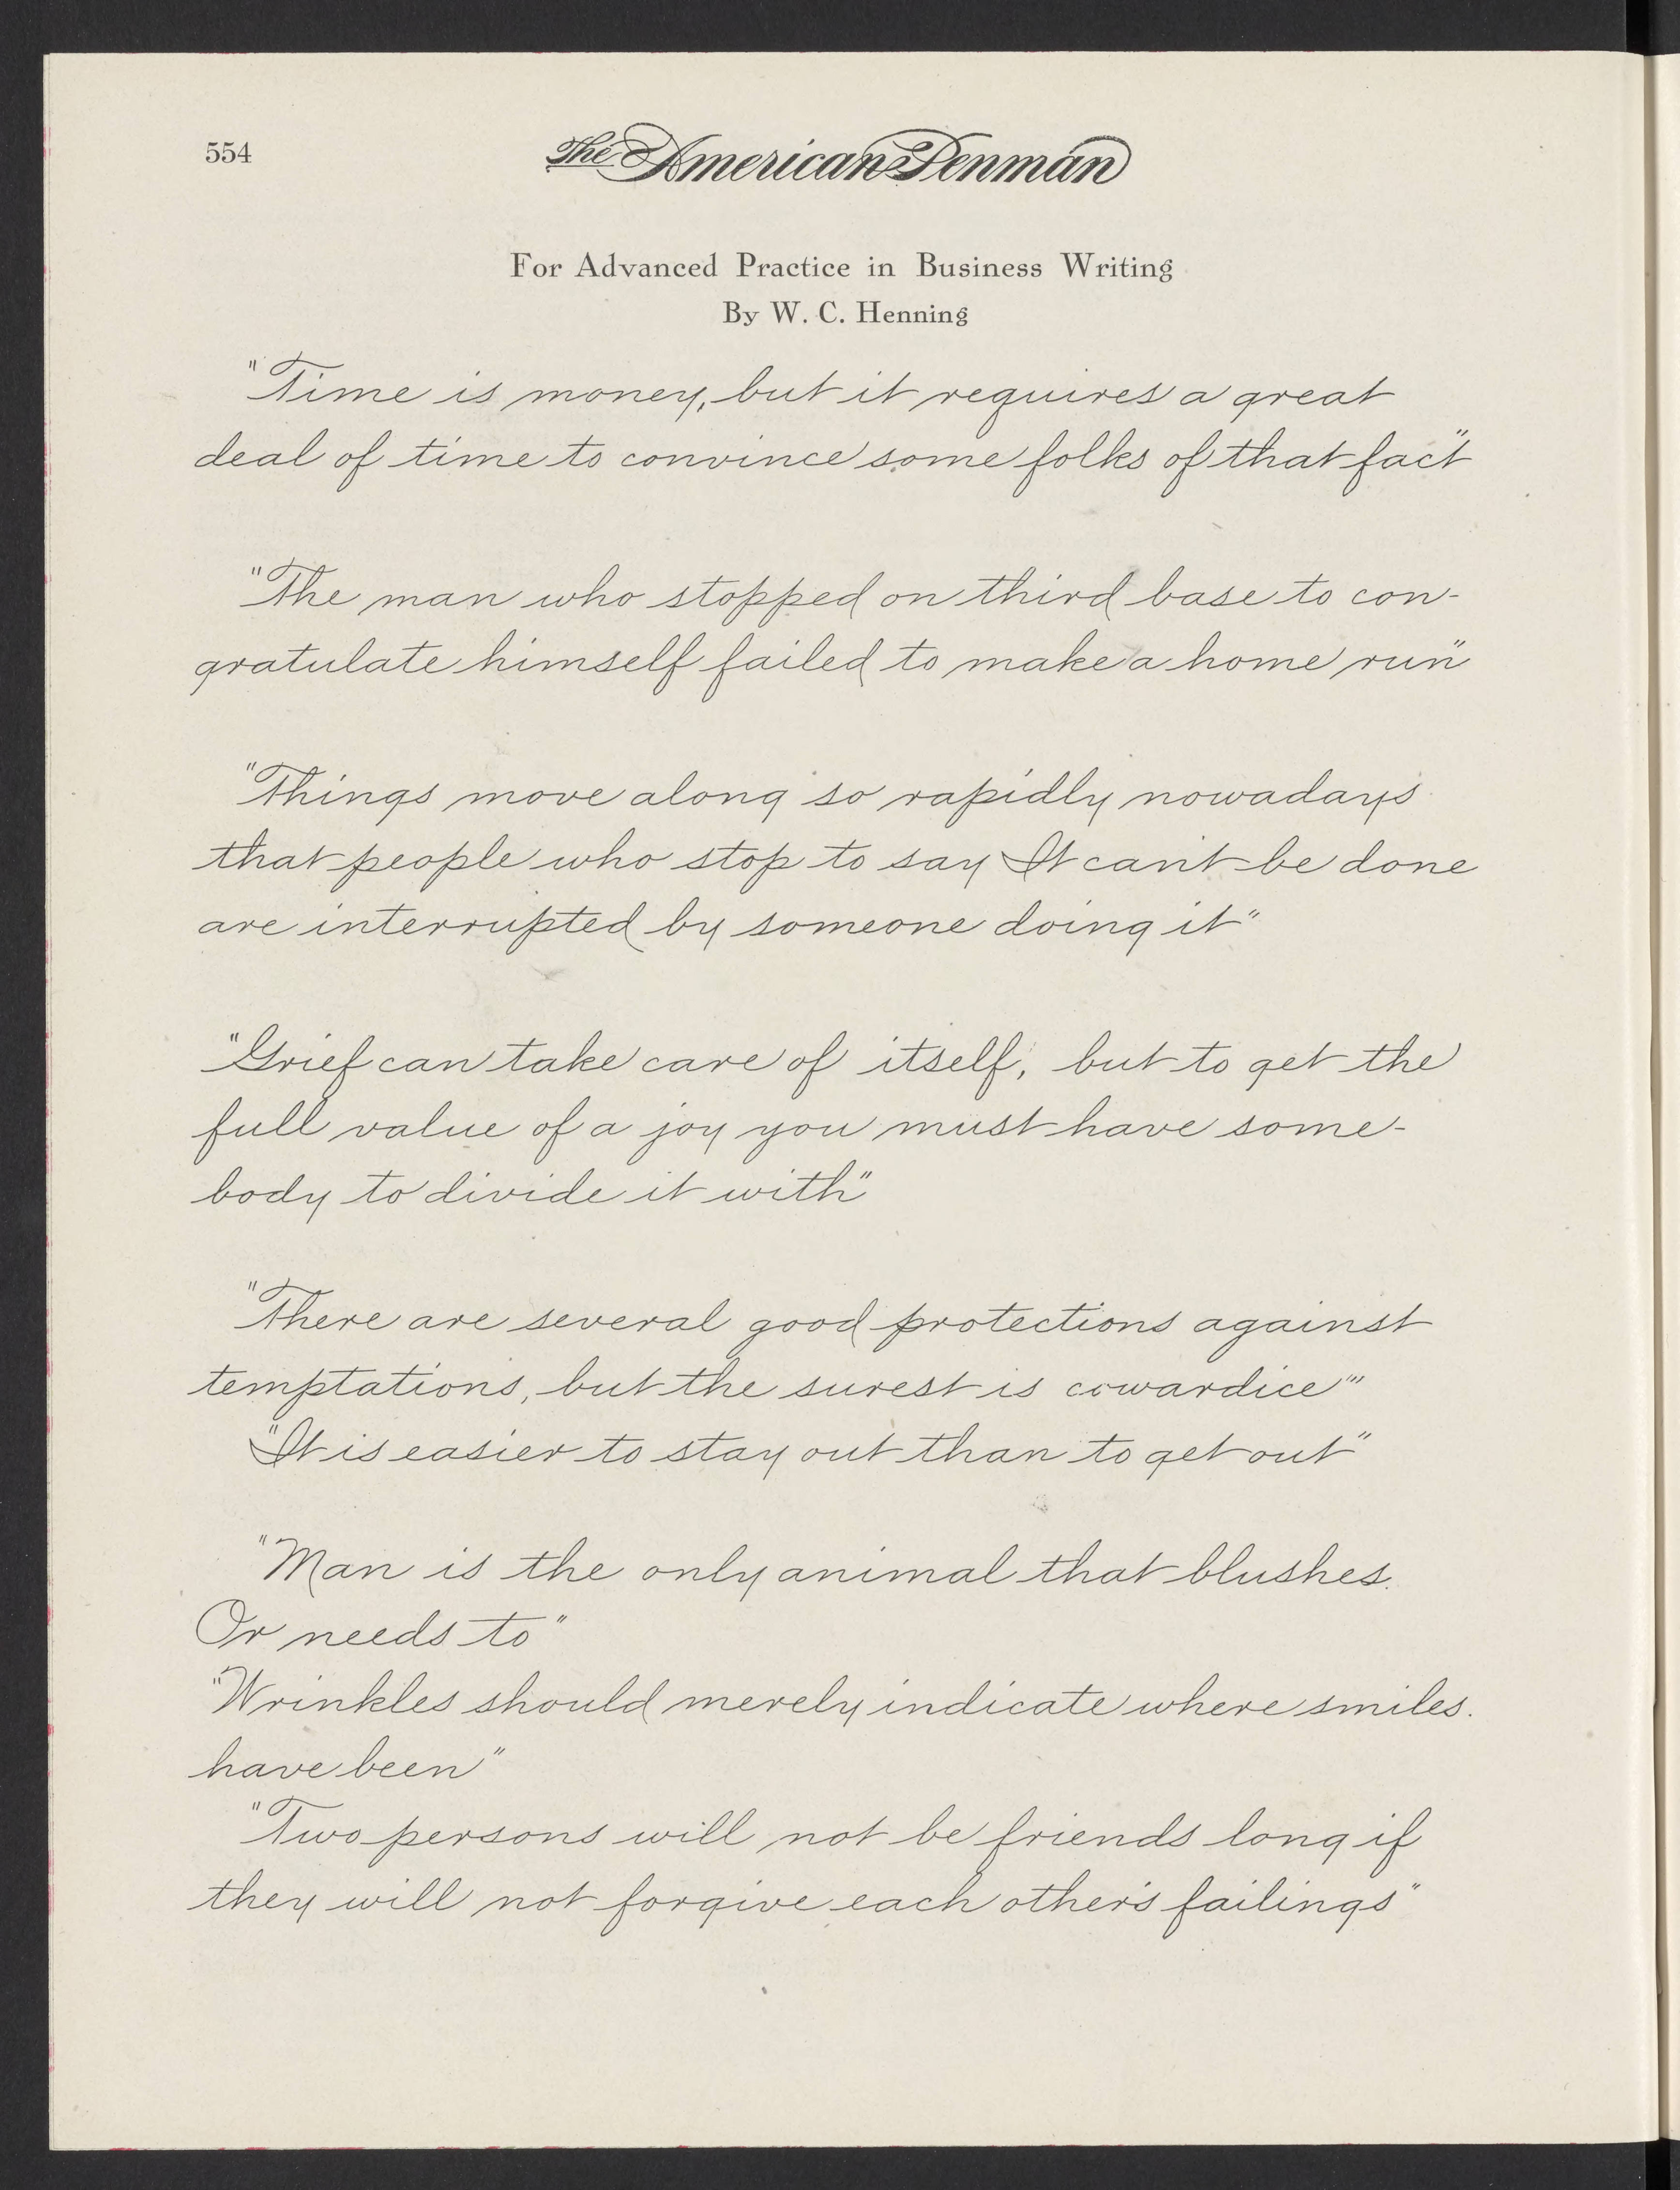 554
The American Penman
For Advanced Practice in Business Writing
By W. C. Henning
"Time is money, but it requires a great
deal of time to convince some folks of that fact"
"The man who stopped on third base to con-
gratulate himself failed to make a home run"
"Things move along so rapidly nowadays
that people who stop to say It can't be done
are interrupted by someone doing it"
"Grief can take care of itself, but to get the
full value of a joy you must have some-
body to divide it with"
"There are several good protections against
temptations, but the surest is cowardice"'
"It is easier to stay out than to get out"
"Man is the only animal that blushes.
Or needs to"
"Wrinkles should merely indicate where smiles.
have been"
"Two persons will not be friends long if
they will not forgive each other's failings"